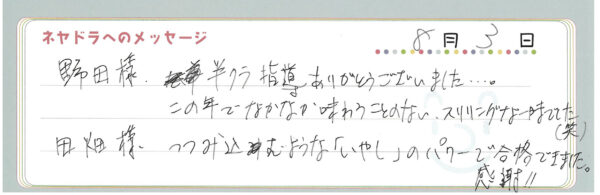 ネヤドラへのメッセージ
8月3日
野田様、半クラ指導ありがとうございました…。
この年でなかなか味わうことのない、スリリングな一時でした(笑)
田畑様、つつみ込むような「いやし」のパワーで合格できました。
感謝!!